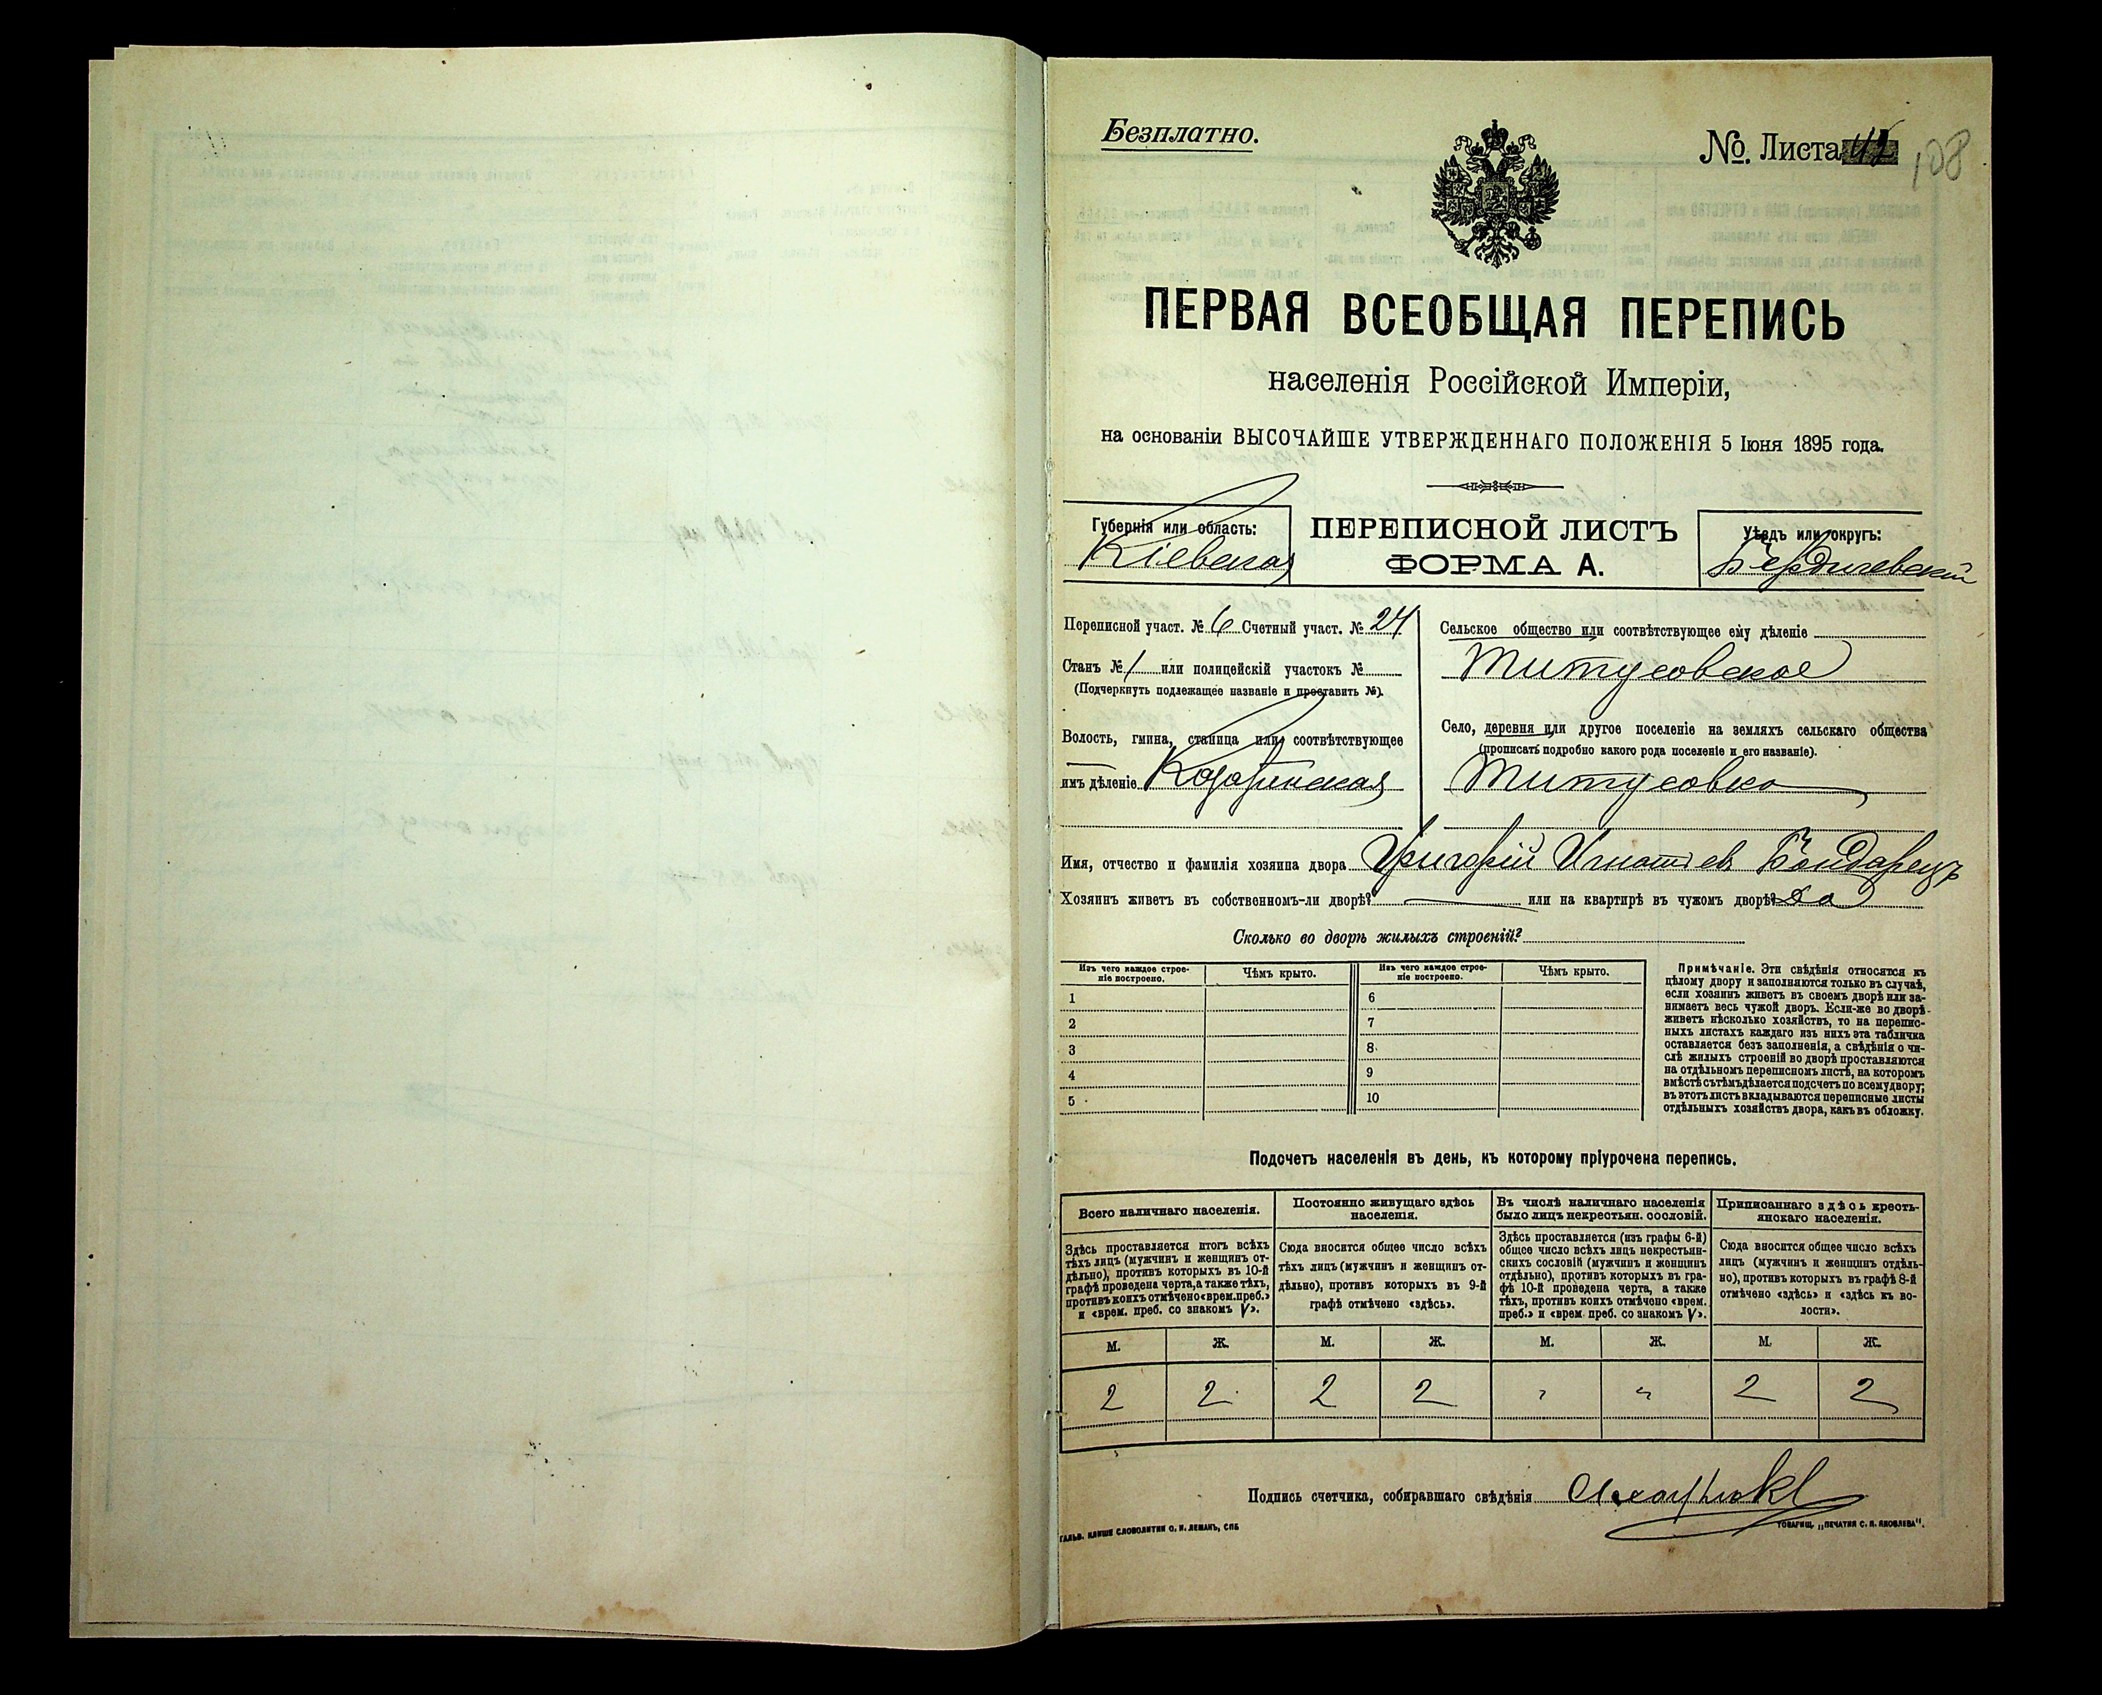 Безплатно.
№. Листа 42
108
ПЕРВАЯ ВСЕОБЩАЯ ПЕРЕПИСЬ
населенія Россійской Имперіи,
на основаніи ВЫСОЧАЙШЕ УТВЕРЖДЕННАГО ПОЛОЖЕНІЯ 5 Іюня 1895 года.
Губернія или область:
Кіевская
ПЕРЕПИСНОЙ ЛИСТЪ
ФОРМА А.
Уѣздъ или округъ:
Бердичевскій
Переписной участ. № 6 Счетный участ. № 24
Станъ № 1 или полицейскій участокъ №
(Подчеркнуть подлежащее названіе и проставить №).
Волость, гмина, станица или соотвѣтствующее
имъ дѣленіе Козатинская
Сельское общество или соотвѣтствующее ему дѣленіе
Титусовское
Село, деревня или другое поселеніе на земляхъ сельскаго общества
(прописать подробно какого рода поселеніе и его названіе).
Титусовка
Имя, отчество и фамилія хозяина двора Григорій Игнатіев Бондарецъ
Хозяинъ живетъ въ собственномъ-ли дворѣ? или на квартирѣ въ чужомъ дворѣ? Да
Сколько во дворѣ жилыхъ строеній?
Изъ чего каждое строе-
ніе построено.
Чѣмъ крыто.
Изъ чего каждое строе-
ніе построено.
Чѣмъ крыто.
1 6
2 7
3 8
4 9
5 10
Примѣчаніе. Эти свѣдѣнія относятся къ
цѣлому двору и заполняются только въ случаѣ,
если хозяинъ живетъ въ своемъ дворѣ или за-
нимаетъ весь чужой дворъ. Если-же во дворѣ
живетъ нѣсколько хозяйствъ, то на перепис-
ныхъ листахъ каждаго изъ нихъ эта табличка
оставляется безъ заполненія, а свѣдѣнія о чи-
слѣ жилыхъ строеній во дворѣ проставляются
на отдѣльномъ переписномъ листѣ, на которомъ
вмѣстѣ съ тѣмъ дѣлается подсчетъ по всему двору;
въ этотъ листъ вкладываются переписные листы
отдѣльныхъ хозяйствъ двора, какъ въ обложку.
Подсчетъ населенія въ день, къ которому пріурочена перепись.
Всего наличнаго населенія.
Здѣсь проставляется итогъ всѣхъ
тѣхъ лицъ (мужчинъ и женщинъ от-
дѣльно), противъ которыхъ въ 10-й
графѣ проведена черта, а также тѣхъ,
противъ коихъ отмѣчено «врем. преб.»
и «врем. преб. со знакомъ V».
Постоянно живущаго здѣсь
населенія.
Сюда вносится общее число всѣхъ
тѣхъ лицъ (мужчинъ и женщинъ от-
дѣльно), противъ которыхъ въ 9-й
графѣ отмѣчено «здѣсь».
Въ числѣ наличнаго населенія
было лицъ некрестьян. сословій.
Здѣсь проставляется (изъ графы 6-й)
общее число всѣхъ лицъ некрестьян-
скихъ сословій (мужчинъ и женщинъ
отдѣльно), противъ которыхъ въ гра-
фѣ 10-й проведена черта, а также
тѣхъ, противъ коихъ отмѣчено «врем.
преб.» и «врем. преб. со знакомъ V».
Приписаннаго здѣсь кресть-
янскаго населенія.
Сюда вносится общее число всѣхъ
лицъ (мужчинъ и женщинъ отдѣль-
но), противъ которыхъ въ графѣ 8-й
отмѣчено «здѣсь» и «здѣсь къ во-
лости».
М. Ж. М. Ж. М. Ж. М. Ж.
2 2 2 2 " " 2 2
Подпись счетчика, собиравшаго свѣдѣнія
ГАЛЬВ. КЛИШЕ СЛОВОЛИТНИ О. И. ЛЕМАНЪ, СПБ
ТОВАРИЩ. „ПЕЧАТНЯ С. П. ЯКОВЛЕВА".